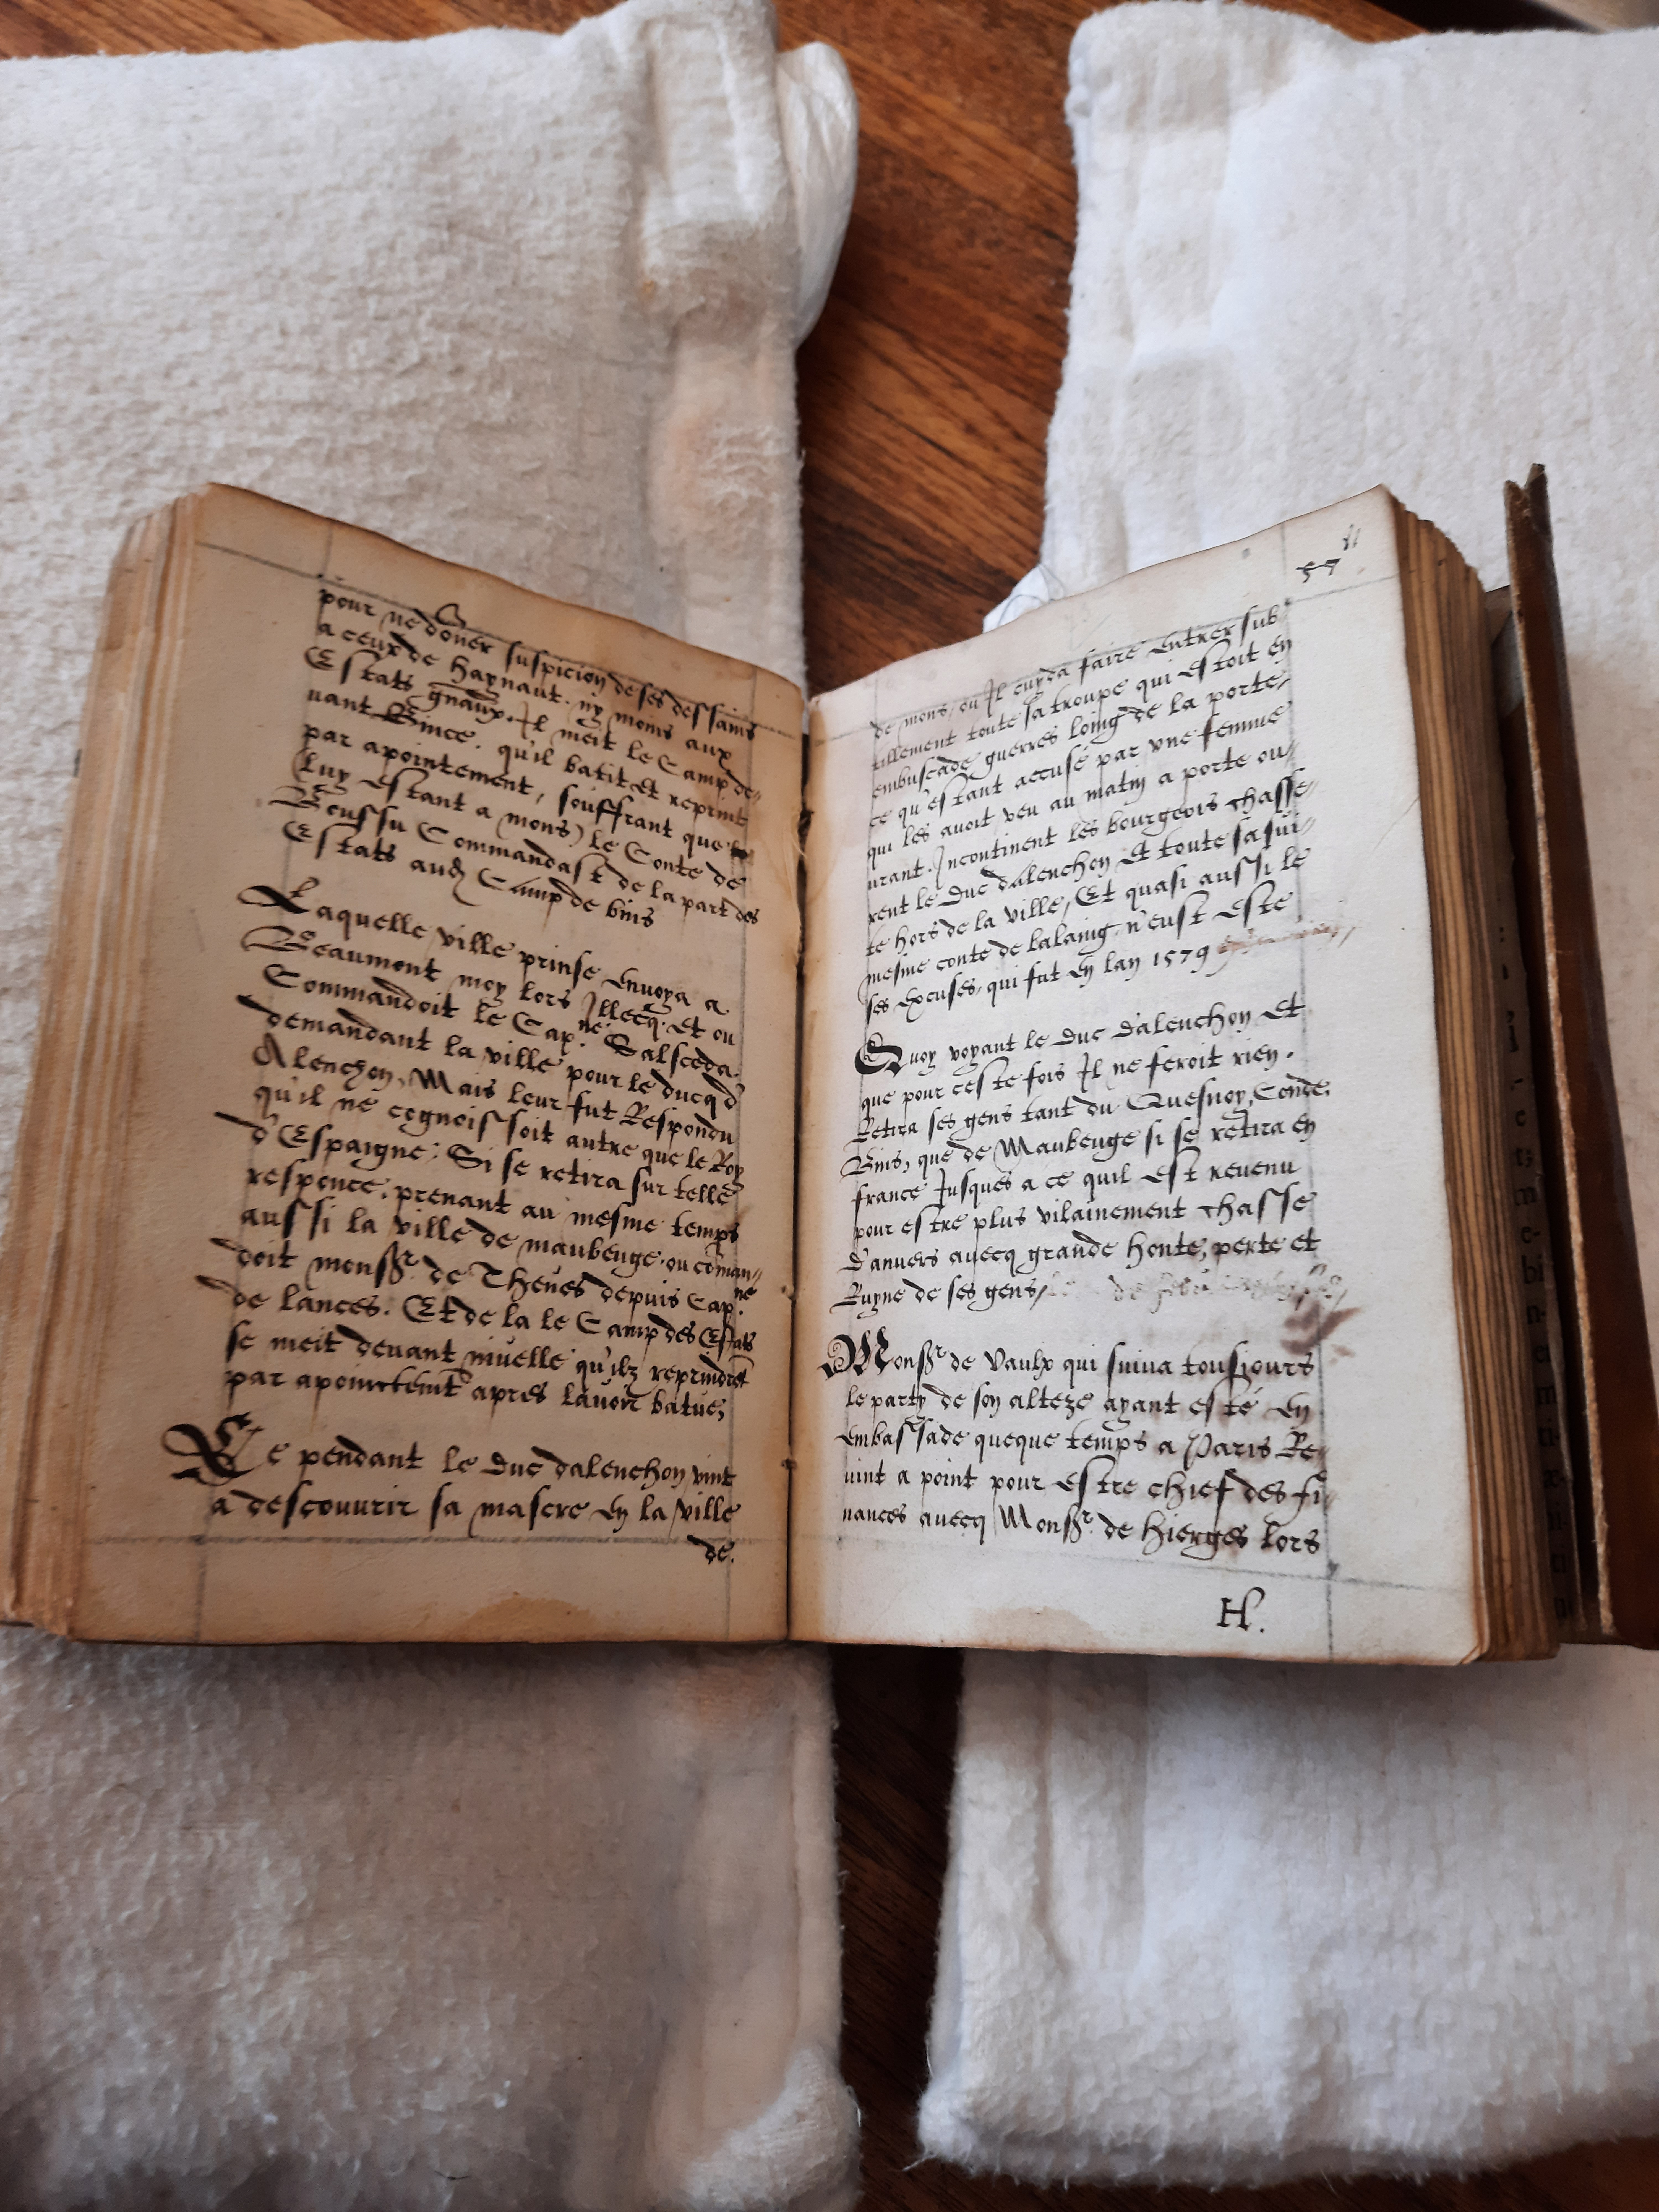 pour ne doner suspicion de ses dessains
a ceux de Haynaut. ny moins aux
Estats gnaux. Il meit le Camp de-
uant Bince. qu'il batit et reprint
par apointement, souffrant que
(luy estant a mons) le Conte de
Boussu Commandast de la part des
Estats aud Camp de bins
Laquelle ville prinse envoya a
Beaumont moy lors Illecq. et ou
Commandoit le Cap.ne Salsceda.
demandant la ville pour le ducq d'
Alenchon, Mais leur fut Respondu
qu'il ne cognoissoit autre que le Roy
d'Espaigne: Si se retira sur telle
responce. prenant au mesme temps
aussi la ville de maubeuge. ou coman-
doit monsr. de Theues depuis Cap.ne
de lances. Et de la le Camp des Estats
se meit deuant niuelle qu'ilz reprindret
par apointemt apres lauoir batue,
Ce pendant le Duc dalenchon vint
a descouurir sa mascre en la ville
de.
57
de mons, ou Il cuyda faire entrer sub
tillement toute sa troupe qui estoit en
embuscade guerres loing de la porte,
ce qu'estant accusé par vne femme
qui les auoit veu au matin a porte ou-
urant. Incontinent les bourgeois chasse-
rent le Duc dalenchon Et toute sa sui-
te hors de la ville, Et quasi aussi le
mesme conte de lalaing n'eust este
ses excuses, qui fut en lan 1579
Quoy voyant le Duc d'alenchon Et
que pour ceste fois Il ne feroit rien.
Retira ses gens tant du Quesnoy, Conde,
Bins, que de Maubeuge si se retira en
france Jusques a ce quil est reuenu
pour estre plus vilainement chasse
d'anuers auecq grande honte, perte et
Ruyne de ses gens,
Monsr de Vaulx qui suiua tousiours
le party de son alteze ayant esté en
embassade queque temps a Paris Re-
uint a point pour estre chief des fi-
nances auecq Monsr. de Hierges lors
H.